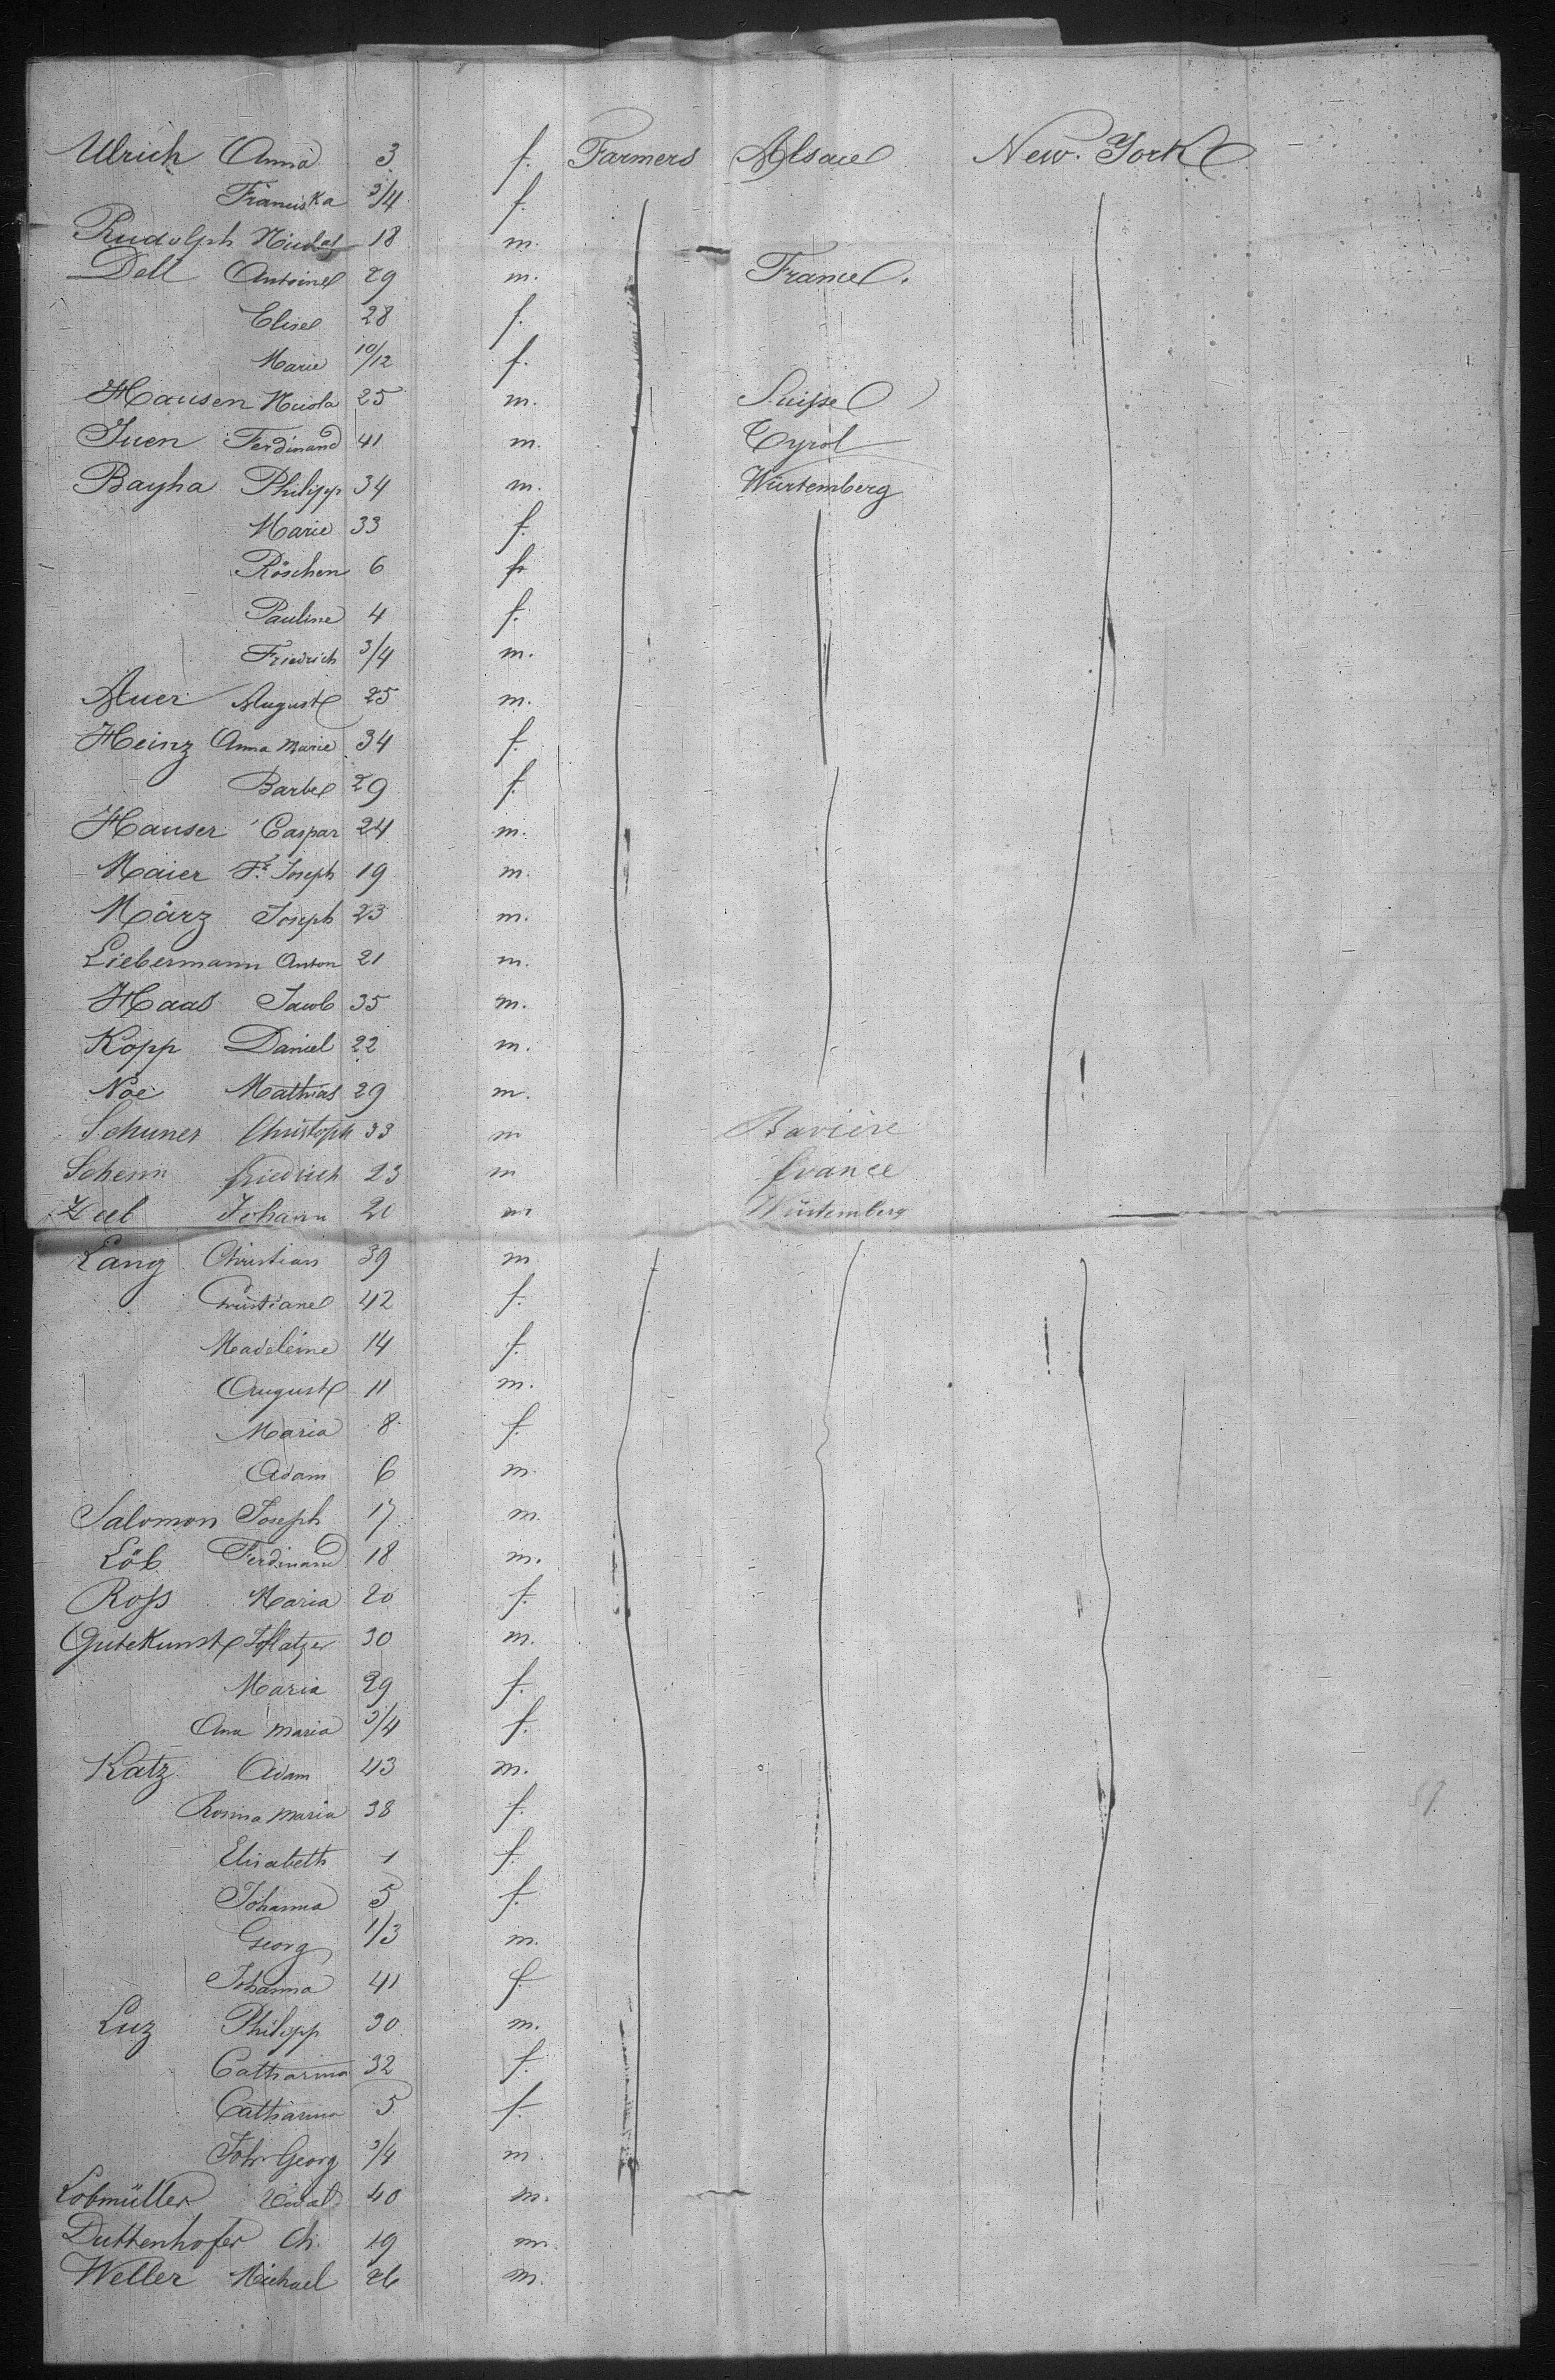 Ulrich Anna 3 f. Farmers Alsace New York
Franciska 3/4 f.
Rudolph Nicolas 18 m.
Dell Antoine 29 m. France.
Elise 28 f.
Marie 10/12 f.
Hausen Nicola 25 m. Suisse
Juen Ferdinand 41 m. Tyrol
Bayha Philipp 34 m. Würtemberg
Marie 33 f.
Röschen 6 f
Pauline 4 f.
Friedrich 3/4 m.
Auer August 25 m.
Heinz Anna Marie 34 f.
Barbe 29 f.
Hauser Caspar 24 m.
Maier Fr. Joseph 19 m.
März Joseph 23 m.
Liebermann Anton 21 m.
Haas Jacob 35 m.
Kopp Daniel 22 m.
Noe Mathias 29 m.
Schuner Christoph 33 m Bavière
Schenn friedrich 23 m france
Johann 20 m Würtemberg
Lang Christian 39 m.
Christiane 42 f.
Madeleine 14 f.
August 11 m.
Maria 8 f.
Adam 6 m.
Salomon Joseph 17 m.
Löb Ferdinand 18 m.
Ross Maria 20 f.
Gutekunst 30 m.
Maria 29 f.
Ana Maria 3/4 f.
Katz Adam 43 m.
Rosina Maria 38 f.
Elisabeth 1 f.
Johanna 5 f.
Georg 1/3 m.
Johanna 41 f
Luz Philipp 30 m.
Catharina 32 f.
Catharina 5 f.
Joh Georg 3/4 m.
Lobmüller 40 m.
Duttenhofer Ch. 19 m.
Weller Michael 26 m.